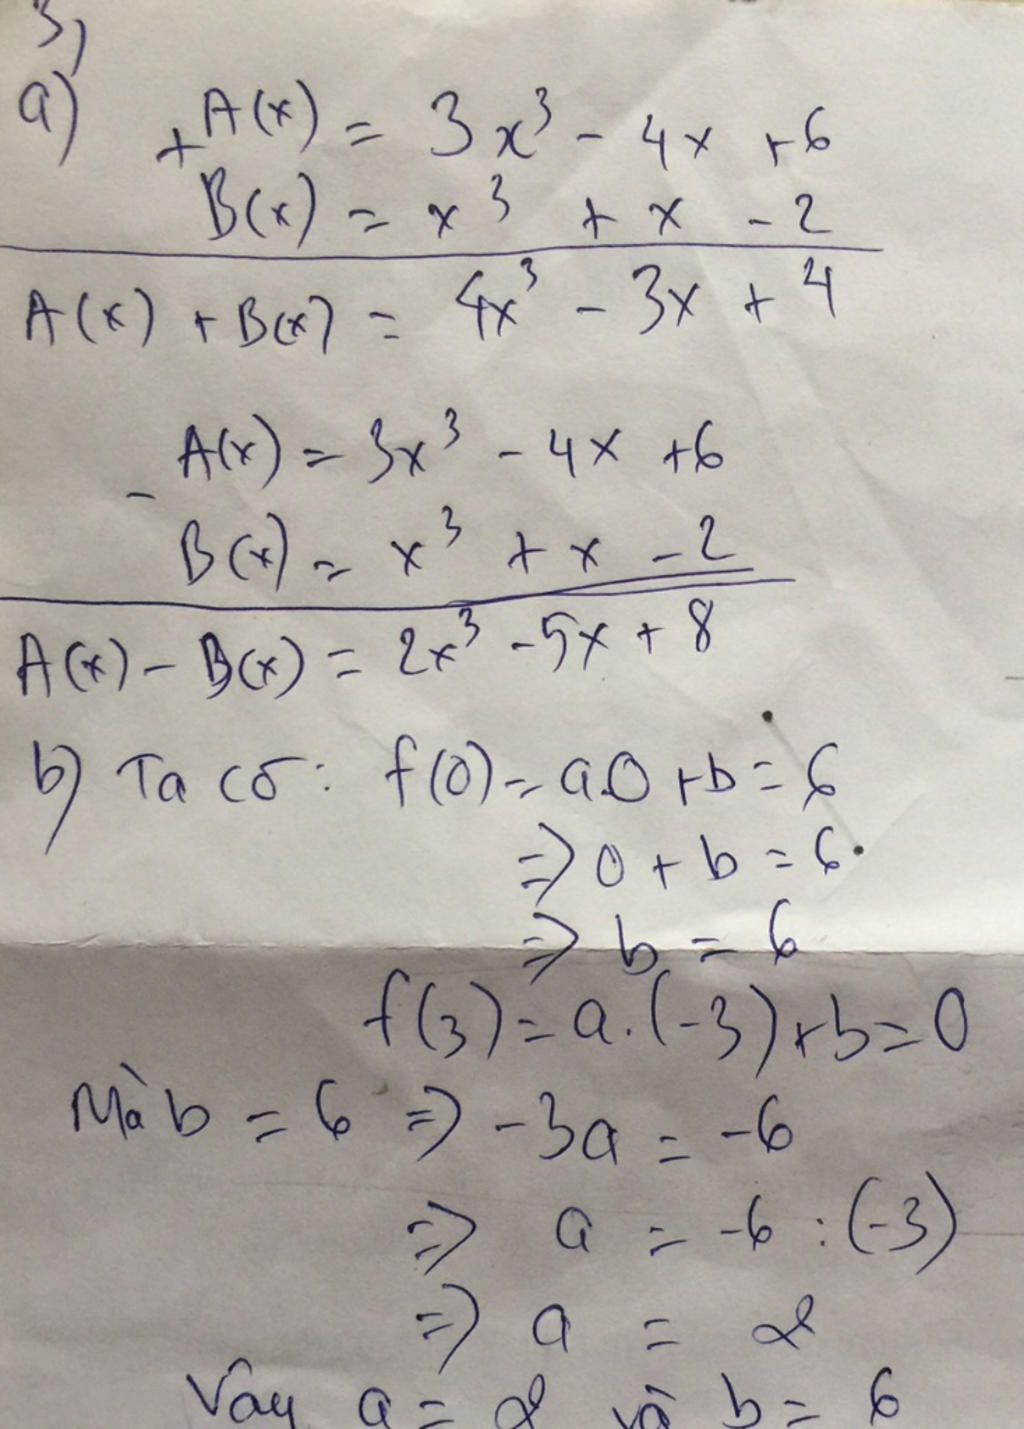 3,
a) + A(x) = 3x³ - 4x + 6
B(x) = x³ + x - 2
A(x) + B(x) = 4x³ - 3x + 4
- A(x) = 3x³ - 4x + 6
B(x) = x³ + x - 2
A(x) - B(x) = 2x³ - 5x + 8
b) Ta có: f(0) = a.0 + b = 6
=> 0 + b = 6
=> b = 6
f(3) = a.(-3) + b = 0
Mà b = 6 => -3a = -6
=> a = -6 : (-3)
=> a = 2
Vậy a = 2 và b = 6